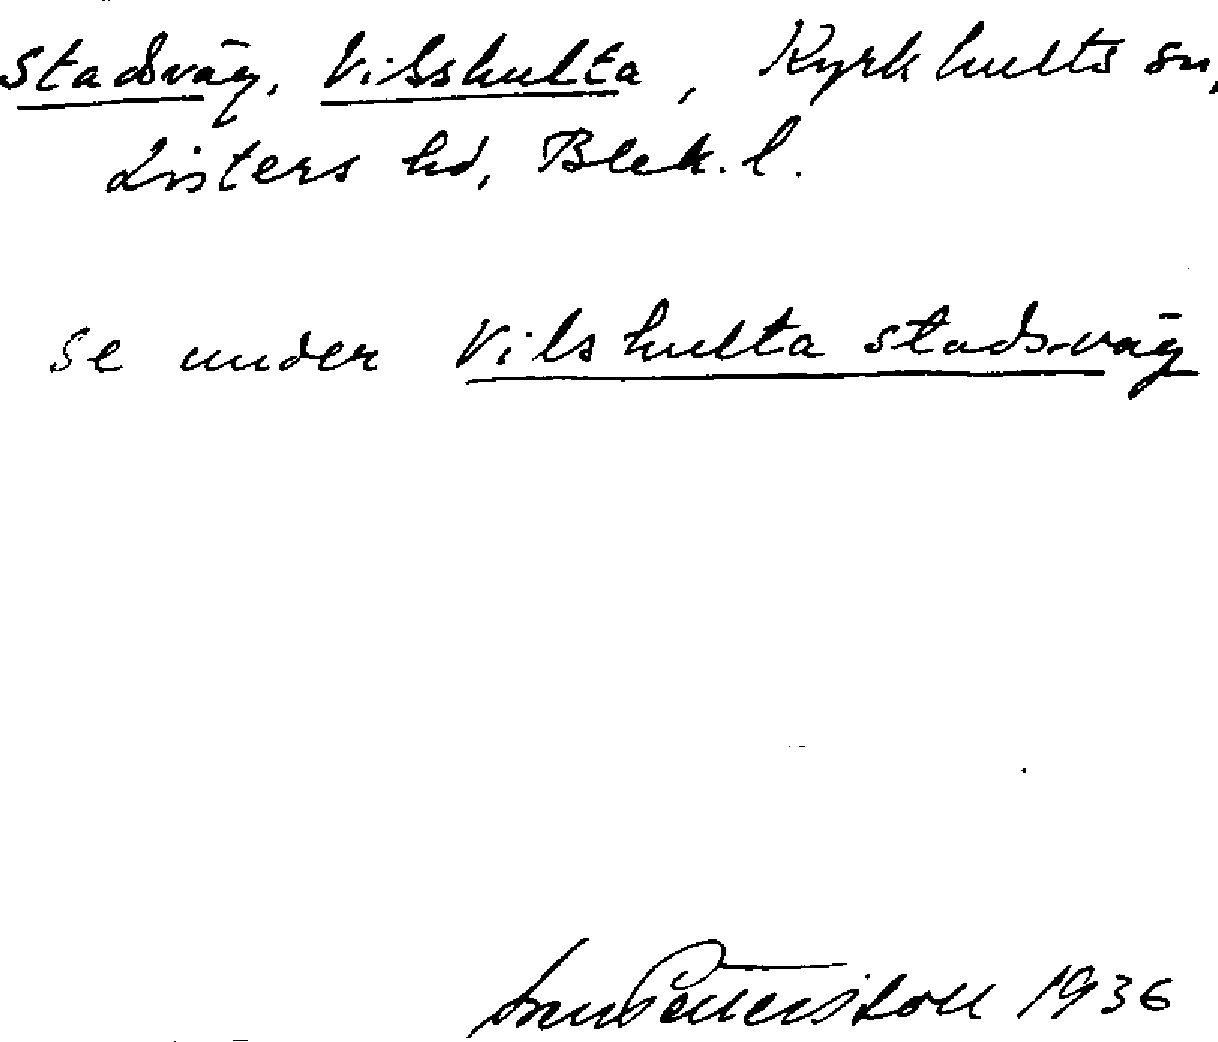 Stadsväg, Vilshulta, Kyrkhults sn,
Listers hd, Blek. l.
Se under Vilshulta stadsväg
Pettersson 1936